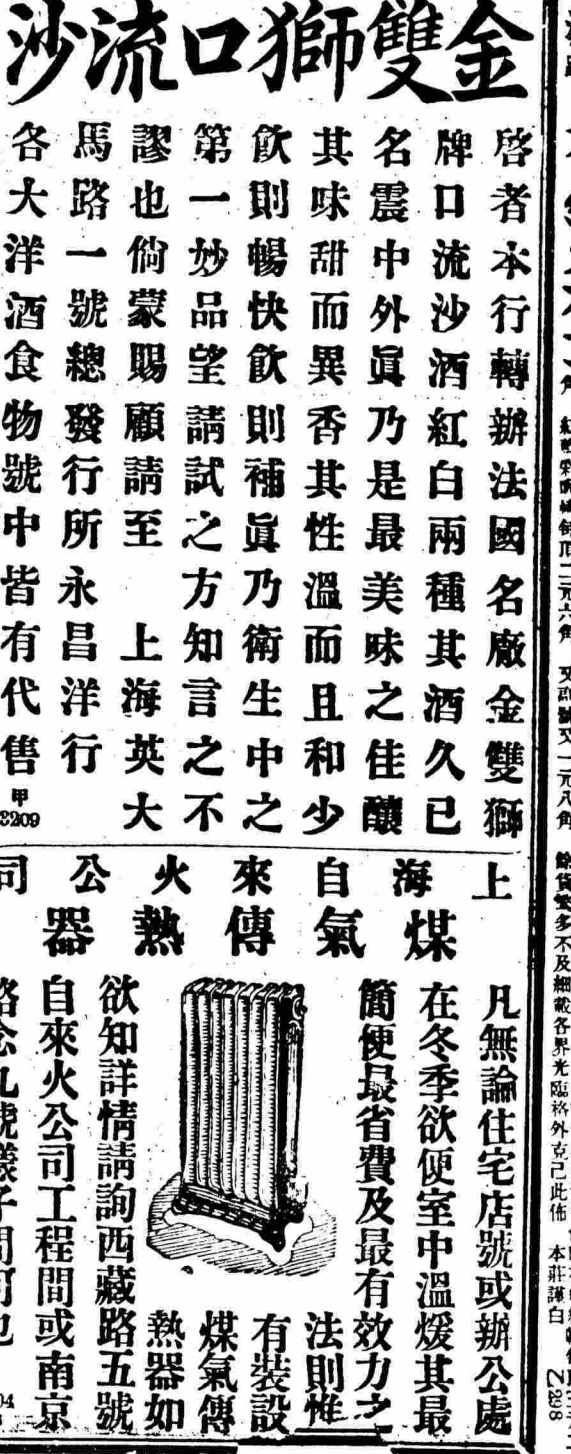 金雙獅口流沙
啓者本行轉辦法國名廠金雙獅
牌口流沙酒紅白兩種其酒久已
名震中外眞乃是最美味之佳釀
其味甜而異香其性溫而且和少
飲則暢快飲則補眞乃衛生中之
第一妙品望請試之方知言之不
謬也倘蒙賜顧請至 上海英大
馬路一號總發行所永昌洋行
各大洋酒食物號中皆有代售
甲
3209
上海自來火公司
煤氣傳熱器
凡無論住宅店號或辦公處
在冬季欲便室中溫煖其最
簡便最省費及最有效力之
法則惟
有裝設
煤氣傳
熱器如
欲知詳情請詢西藏路五號
自來火公司工程間或南京
路念九號樣子間可也
餘貨繁多不及細載各界光臨格外克己此佈
本莊謹白
乙298